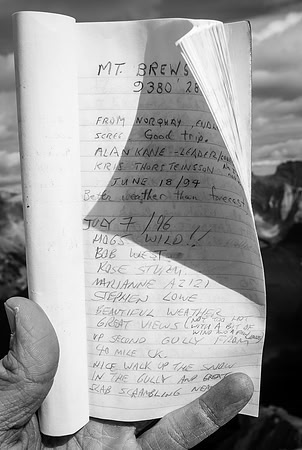 MT. BREWS
9380' 28
FROM NORQUAY,
SCREE. Good trip.
ALAN KANE - LEADER/
KRIS THORSTEINSSON
JUNE 18/94
Better weather than forecast
JULY 7/96
HOGS WILD!!
BOB WEST
ROSE STURM
MARIANNE AZIZI
STEPHEN LOWE
BEAUTIFUL WEATHER
GREAT VIEWS (NOT TOO HOT
WITH A BIT OF
WIND
UP SECOND GULLY FROM
40 MILE CK.
NICE WALK UP THE SNOW
IN THE GULLY AND GREAT
SLAB SCRAMBLING NEAR